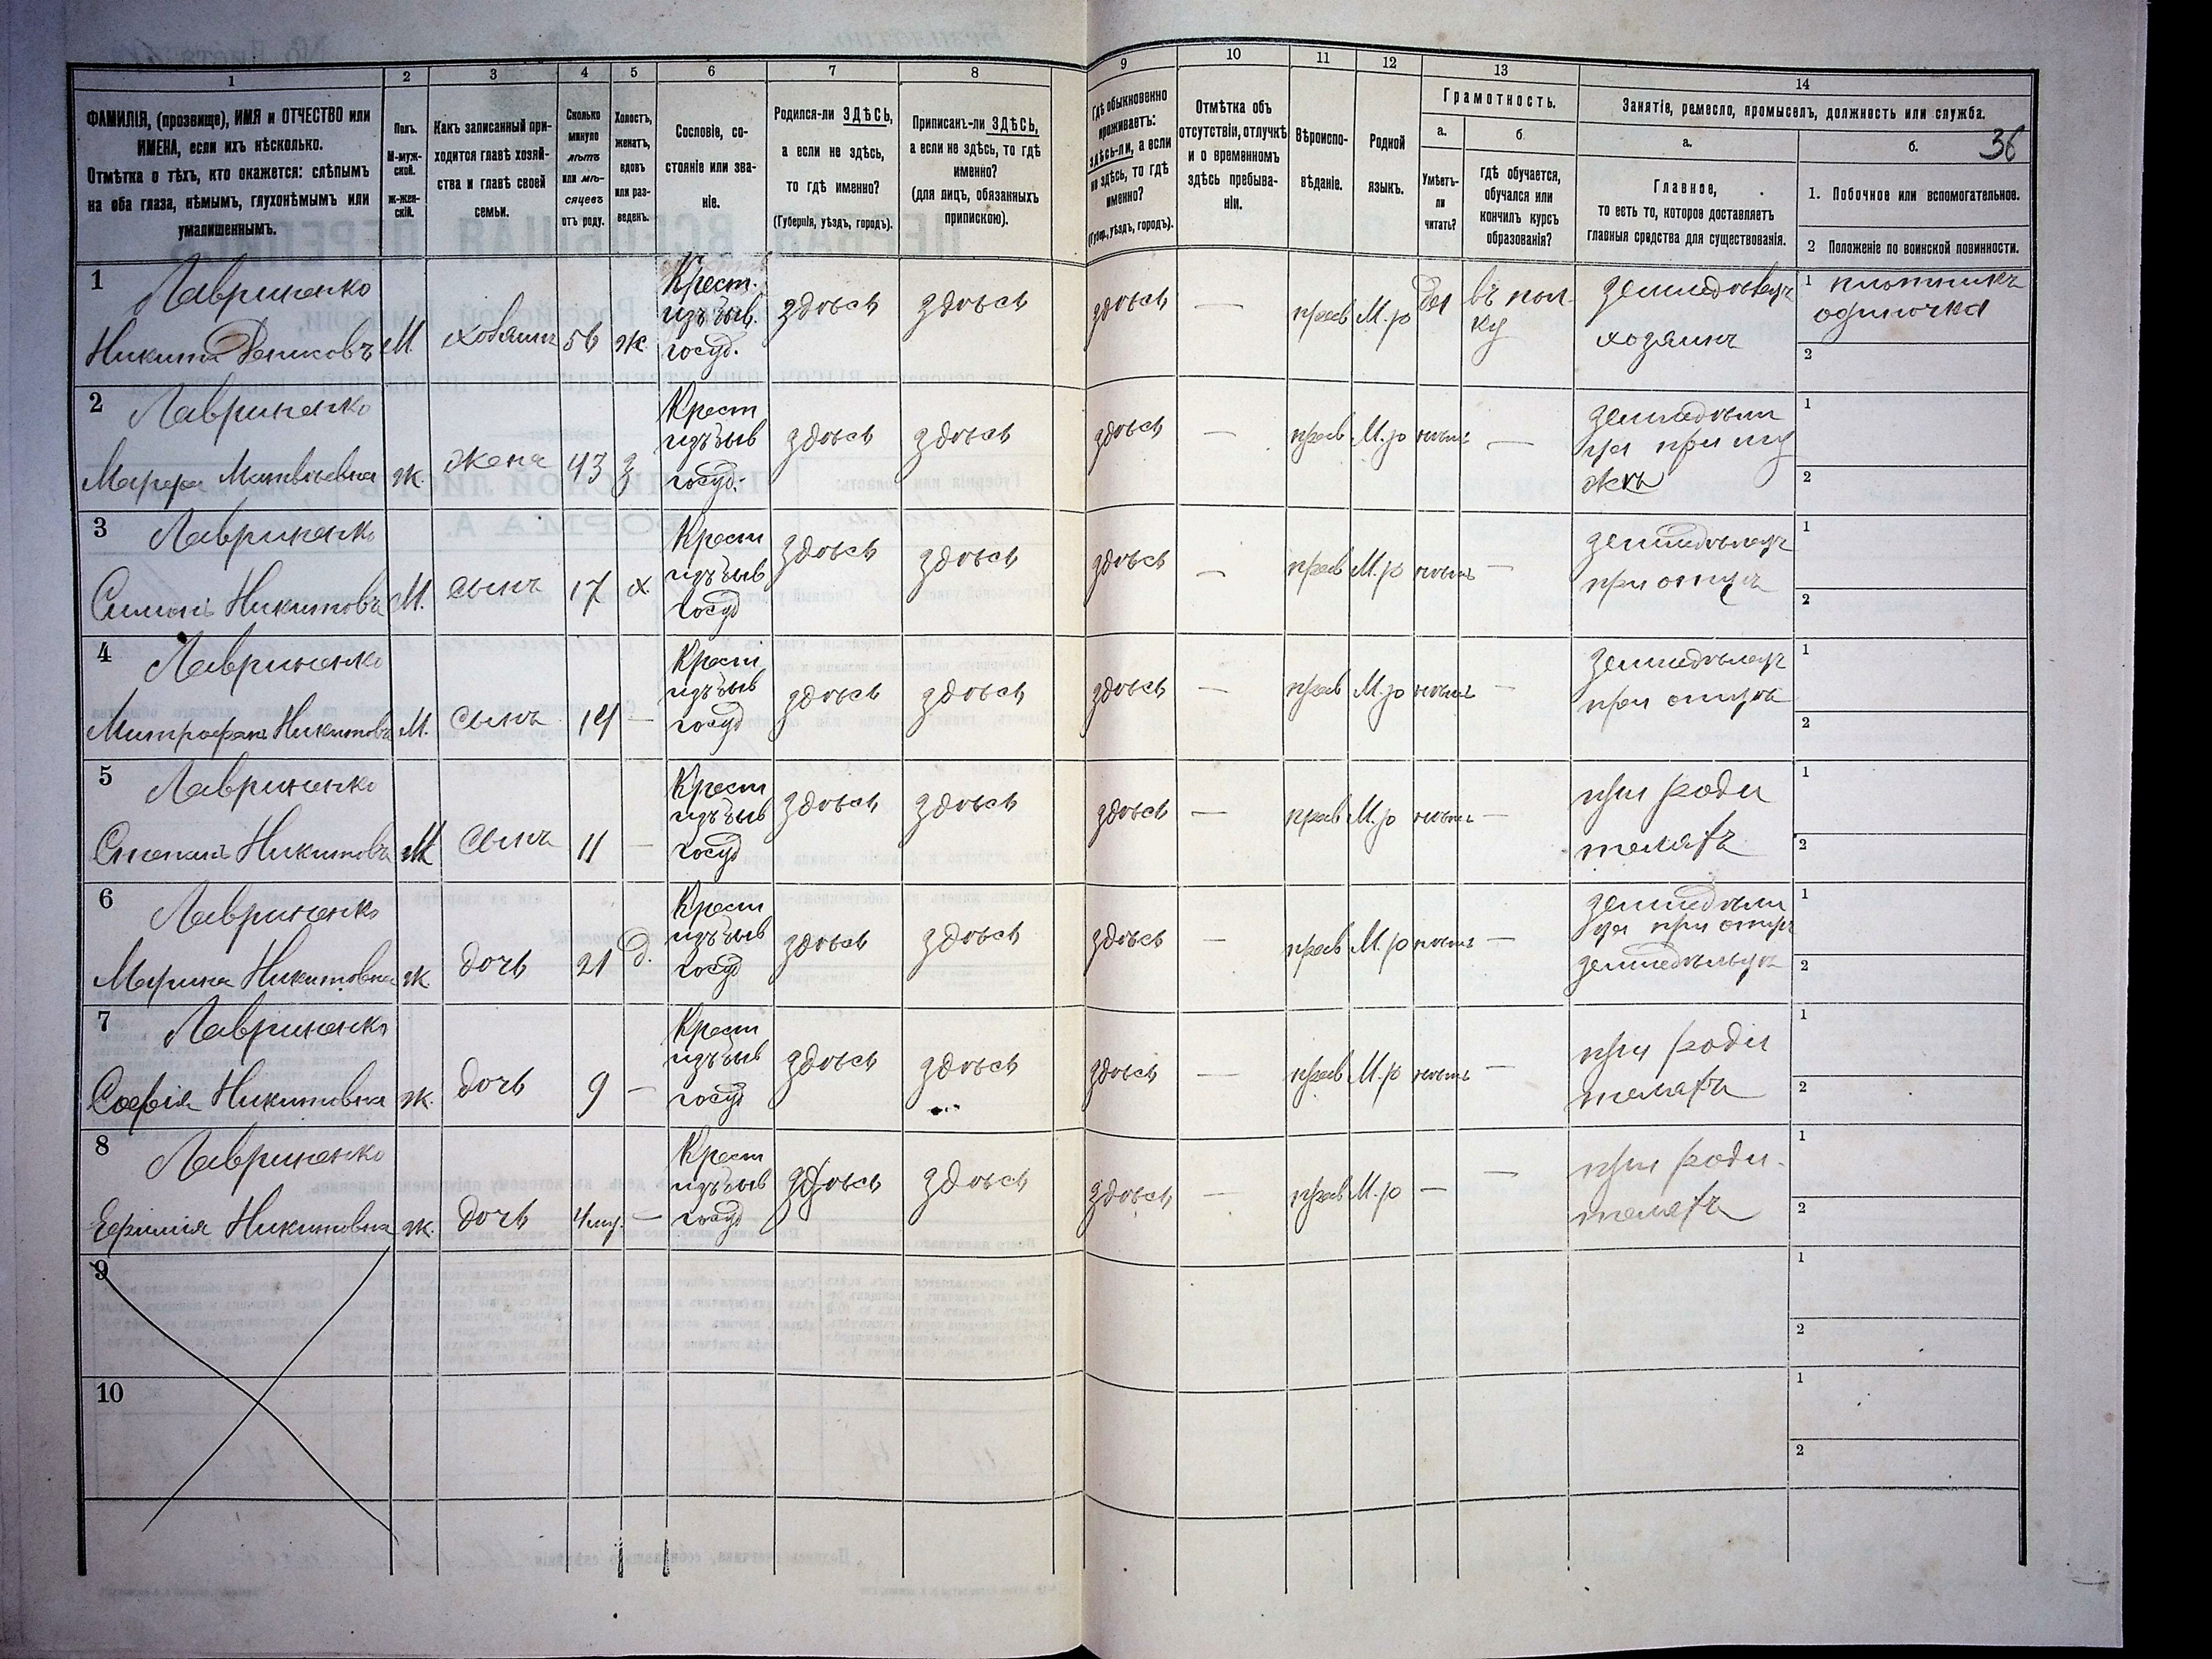 1 2 3 4 5 6 7 8 9 10 11 12 13 14
ФАМИЛІЯ, (прозвище), ИМЯ и ОТЧЕСТВО или
ИМЕНА, если ихъ нѣсколько.
Отмѣтка о тѣхъ, кто окажется: слѣпымъ
на оба глаза, нѣмымъ, глухонѣмымъ или
умалишеннымъ.
Полъ.
М-муж-
ской.
Ж-жен-
скій.
Какъ записанный при-
ходится главѣ хозяй-
ства и главѣ своей
семьи.
Сколько
минуло
лѣтъ
или мѣ-
сяцевъ
отъ роду.
Холостъ,
женатъ,
вдовъ
или раз-
веденъ.
Сословіе, со-
стояніе или зва-
ніе.
Родился-ли ЗДѢСЬ,
а если не здѣсь,
то гдѣ именно?
(Губернія, уѣздъ, городъ).
Приписанъ-ли ЗДѢСЬ,
а если не здѣсь, то гдѣ
именно?
(для лицъ, обязанныхъ
припискою).
Гдѣ обыкновенно
проживаетъ:
здѣсь-ли, а если
не здѣсь, то гдѣ
именно?
(Губер., уѣздъ, городъ).
Отмѣтка объ
отсутствіи, отлучкѣ
и о временномъ
здѣсь пребыва-
ніи.
Вѣроиспо-
вѣданіе.
Родной
языкъ.
Грамотность.
а.
Умѣетъ-
ли
читать?
б.
гдѣ обучается,
обучался или
кончилъ курсъ
образованія?
Занятіе, ремесло, промыселъ, должность или служба.
а.
Главное,
то есть то, которое доставляетъ
главныя средства для существованія.
б.
36
1. Побочное или вспомогательное.
2 Положеніе по воинской повинности.
1 Лавриненко
Никита Денисовъ
М. хозяинъ 56 ж.
Крест.
изъ быв.
госуд.
здѣсь здѣсь здѣсь — прав М.р
да
въ пол-
ку
земледѣлецъ
хозяинъ
1 плотникъ
одиночка
2
2 Лавриненко
Марфа Матвѣевна
ж. жена 43 з
Крест
изъ быв
госуд.
здѣсь здѣсь здѣсь — прав М.р нѣтъ —
земледѣли
ца при му
жѣ
1
2
3 Лавриненко
Симонъ Никитовъ
М. сынъ 17 х.
Крест
изъ быв
госуд
здѣсь здѣсь здѣсь — прав М.р нѣтъ —
земледѣлецъ
при отцѣ
1
2
4 Лавриненко
Митрофанъ Никитовъ
М. сынъ 14 —
Крест
изъ быв
госуд
здѣсь здѣсь здѣсь — прав М.р нѣтъ —
земледѣлецъ
при отцѣ
1
2
5 Лавриненко
Степанъ Никитовъ
М сынъ 11 —
Крест
изъ быв
госуд
здѣсь здѣсь здѣсь — прав М.р нѣтъ —
при роди
теляхъ
1
2
6 Лавриненко
Марина Никитовна
ж. дочь 21 д.
Крест
изъ быв
госуд
здѣсь здѣсь здѣсь — прав М.р нѣтъ —
земледѣли
ца при отцѣ
земледѣльцѣ
1
2
7 Лавриненко
Софія Никитовна
ж. дочь 9 —
Крест
изъ быв
госуд
здѣсь здѣсь здѣсь — прав М.р нѣтъ —
при роди
теляхъ
1
2
8 Лавриненко
Ефимія Никитовна
ж. дочь 4 мѣ. —
Крест
изъ быв
госуд
здѣсь здѣсь здѣсь — прав М.р — —
при роди-
теляхъ
1
2
9
1
2
10
1
2